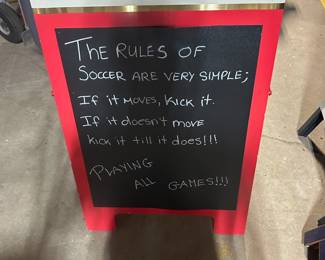 THE RULES OF
SOCCER ARE VERY SIMPLE;
If it moves, kick it.
If it doesn't move
kick it till it does!!!
PLAYING
ALL GAMES!!!